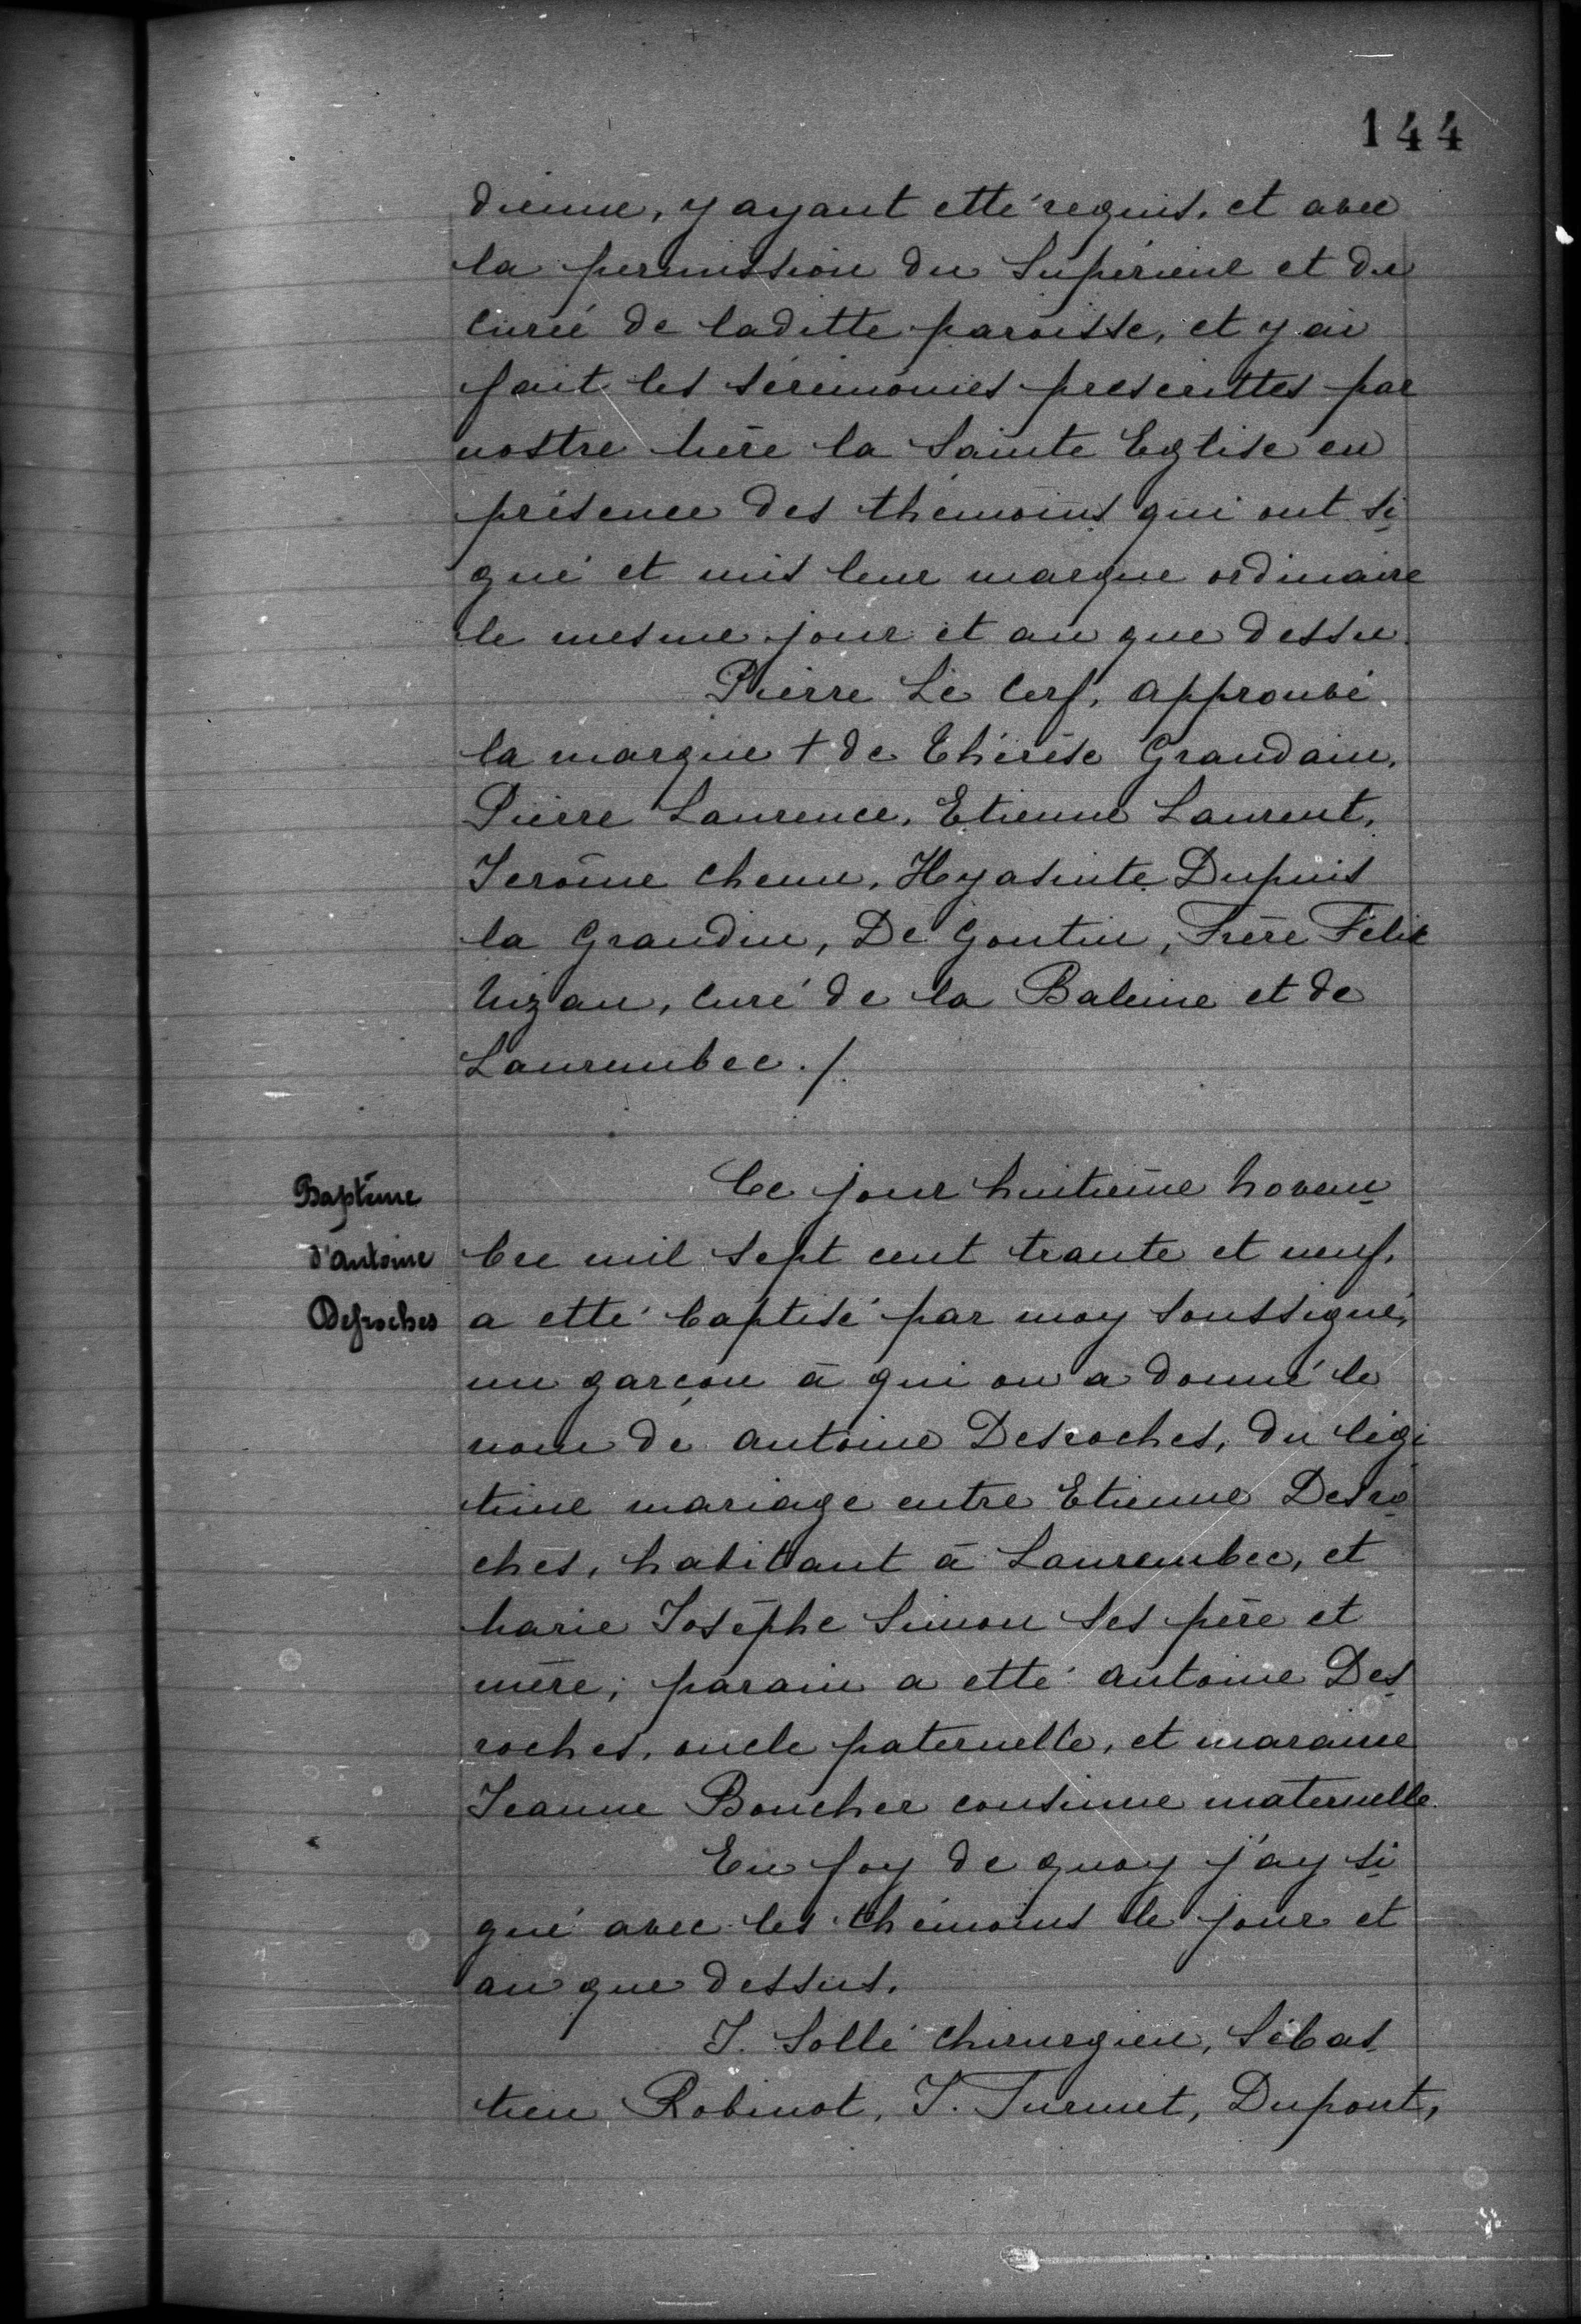 144
dienne, y ayant etté requis, et avec
la permission du Supérieur et du
Curé de laditte paroisse, et y ai
fait les sérémonies prescrittes par
nostre Mère la Sainte Eglise en
présence des thémoins qui ont si
gné et mis leur marque ordinaire
le mesme jour et an que dessu.
Pierre Le Cerf, approuvé
la marque + de Thérèse Grandain,
Pierre Laurence, Etienne Laurent,
Jerôme Chenu, Hyasinte Dupuis
la Grandin, De Goutin, Frère Félix
Nizan, Curé de la Baleine et de
Laurembec./.
Baptême
d'Antoine
Desroches
Ce jour huitième Novem
bre mil sept cent trante et neuf,
a etté baptisé par moy soussigné,
un garçon à qui on a donné le
nom de Antoine Desroches, du légi
time mariage entre Etienne Desro
ches, habitant à Laurembec, et
Marie Josèphe Simon ses père et
mère; parain a etté Antoine Des
roches, oncle paternelle, et maraine
Jeanne Boucher cousinne maternelle.
En foy de quoy j'ay si
gné avec les thémoins le jour et
an que dessus.
J. Sollé Chirurgien, Sébas
tien Robinot, J. Turmet, Dupont,